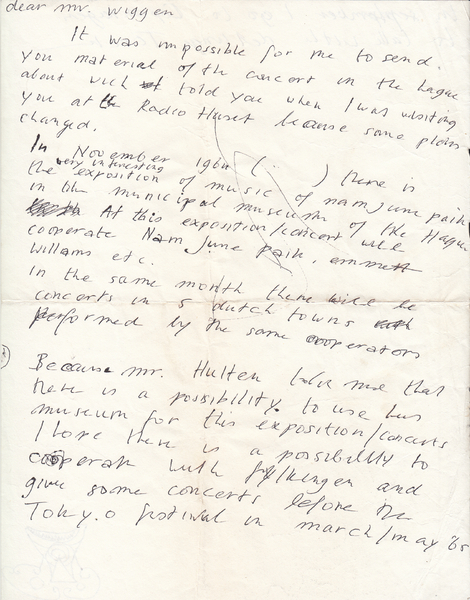 dear mr. Wiggen
It was impossible for me to send
you material of the concert in the hague
about wich I told you when I was visiting
you at the Radio Huset because some plans
changed.
In November 1964 ( ) there is
the very interesting exposition of music of namjune paik
in the municipal museum of the Hague
At this exposition/concert will
cooperate Nam June paik, emmett
willams etc.
in the same month there will be
concerts in 5 dutch towns
performed by the same cooperators
Because mr. Hulten told me that
there is a possibility to use his
museum for this exposition/concerts
I hope there is a possibility to
cooperate with fylkingen and
give some concerts before the
Tokyo festival in march/may '65